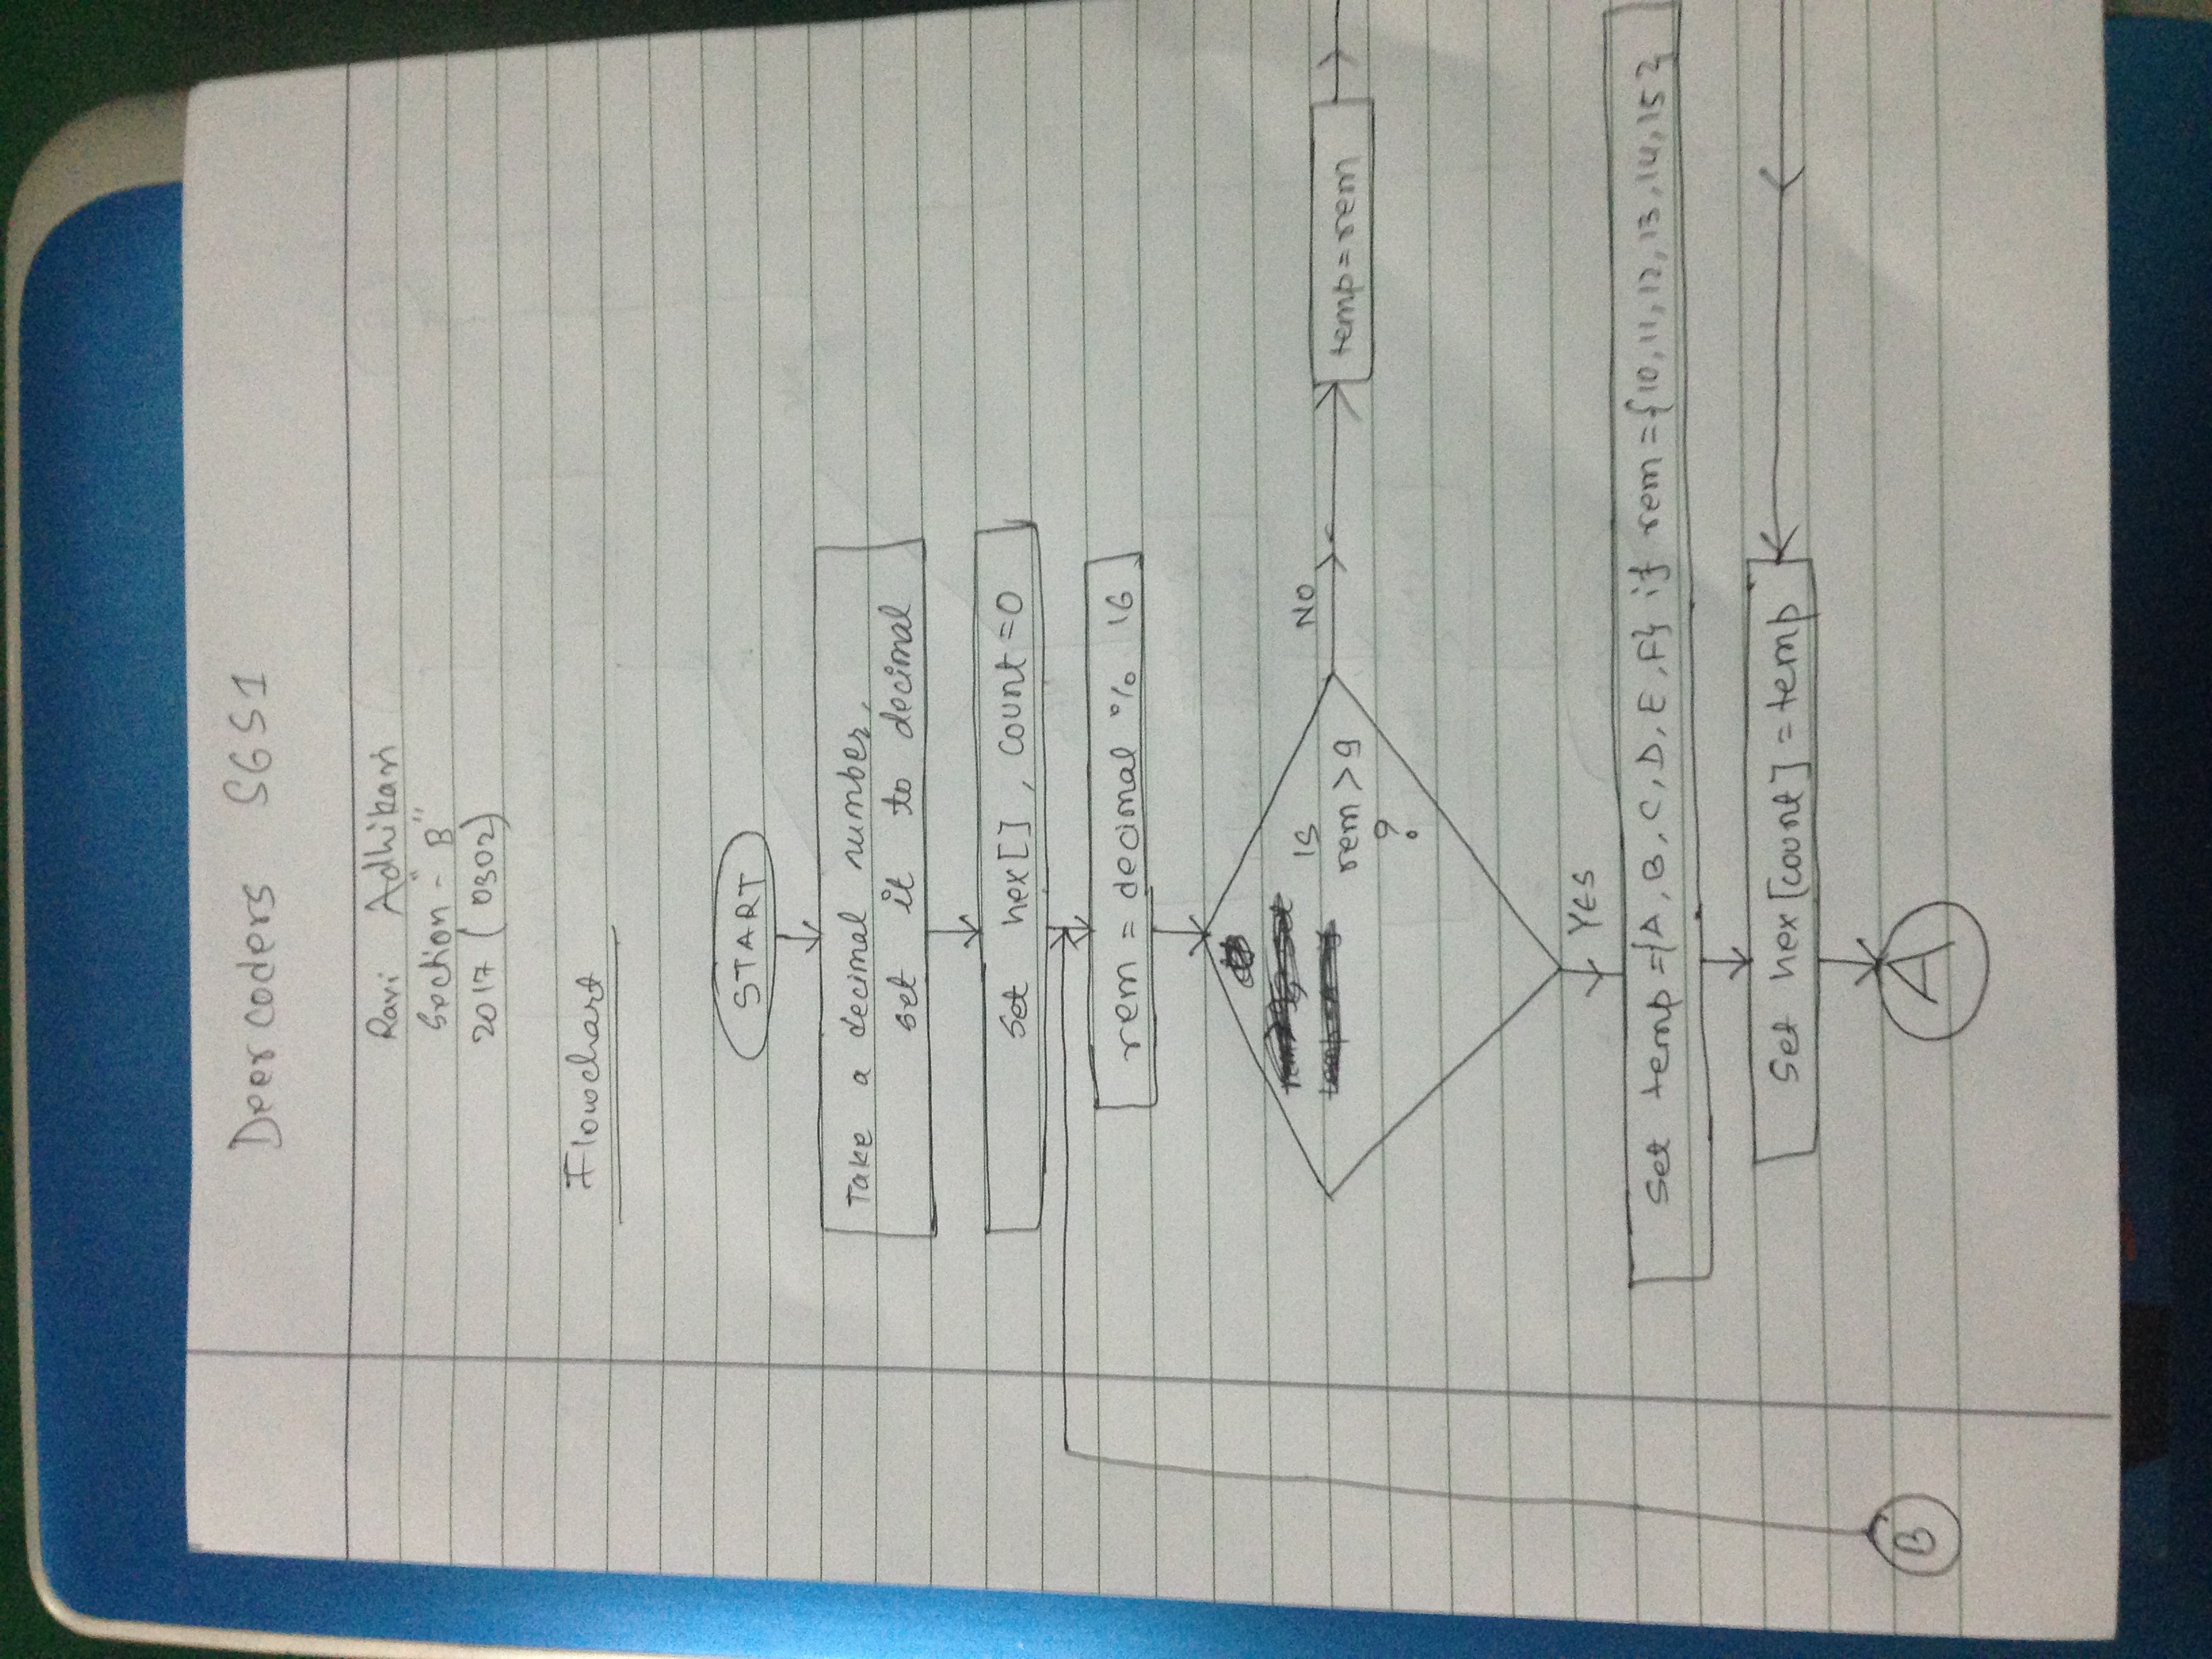 Deer coders SGS1
Ravi Adhikari
Section - "B"
2017 (0302)
Flowchart
START
Take a decimal number,
set it to decimal
Set hex[], count=0
rem = decimal % 16
Is
rem > 9
?
NO
temp=rem
YES
Set temp={A, B, C, D, E, F} if rem = {10, 11, 12, 13, 14, 15}
Set hex[count] = temp
B
A